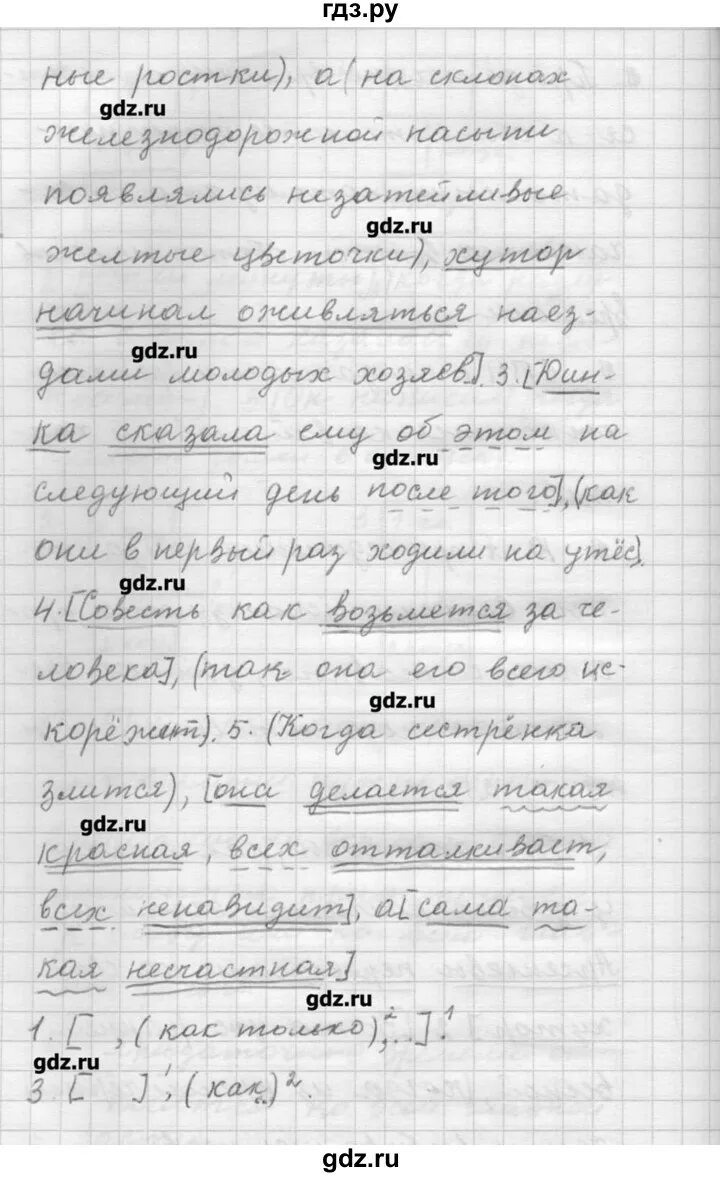 гдз.ру
ные ростки), а (на склонах
gdz.ru
железнодорожной насыпи
появлялись незатейливые
gdz.ru
желтые цветочки), хутор
начинал оживляться наез-
gdz.ru
дами молодых хозяев]. 3. [Юин-
ка сказала ему об этом на
gdz.ru
следующий день после того], (как
они в первый раз ходили на утёс).
gdz.ru
4. [Совесть как возьмется за че-
ловека], (так она его всего ис-
gdz.ru
корёжит). 5. (Когда сестрёнка
злится), [она делается такая
gdz.ru
красная, всех отталкивает,
всех ненавидит], а [сама та-
кая несчастная]
gdz.ru
1. [ , (как только)², ..]¹.
gdz.ru
3. [ ]¹, (как..)².
gdz.ru